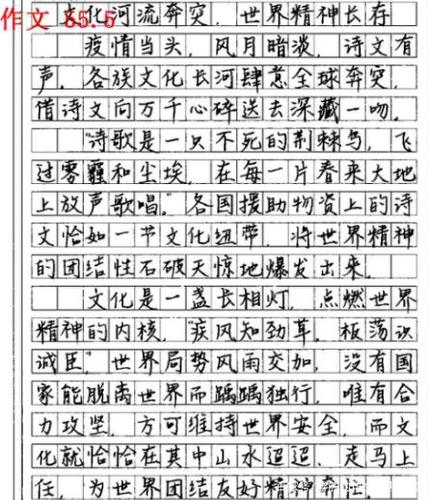 作文 55.5
文化河流奔突，世界精神长存
疫情当头，风月暗淡，诗文有
声。各族文化长河肆意全球奔突，
借诗文向万千心碎送去深藏一吻。
“诗歌是一只不死的荆棘鸟，飞
过雾霾和尘埃，在每一片春来大地
上放声歌唱。”各国援助物资上的诗
文恰如一节文化纽带，将世界精神
的团结性石破天惊地爆发出来。
文化是一盏长相灯，点燃世界
精神的内核。“疾风知劲草，板荡识
诚臣。”世界局势风雨交加，没有国
家能脱离世界而踽踽独行，唯有合
力攻坚，方可维持世界安全，而文
化就恰恰在其中山水迢迢、走马上
任，为世界团结友好精神奔忙